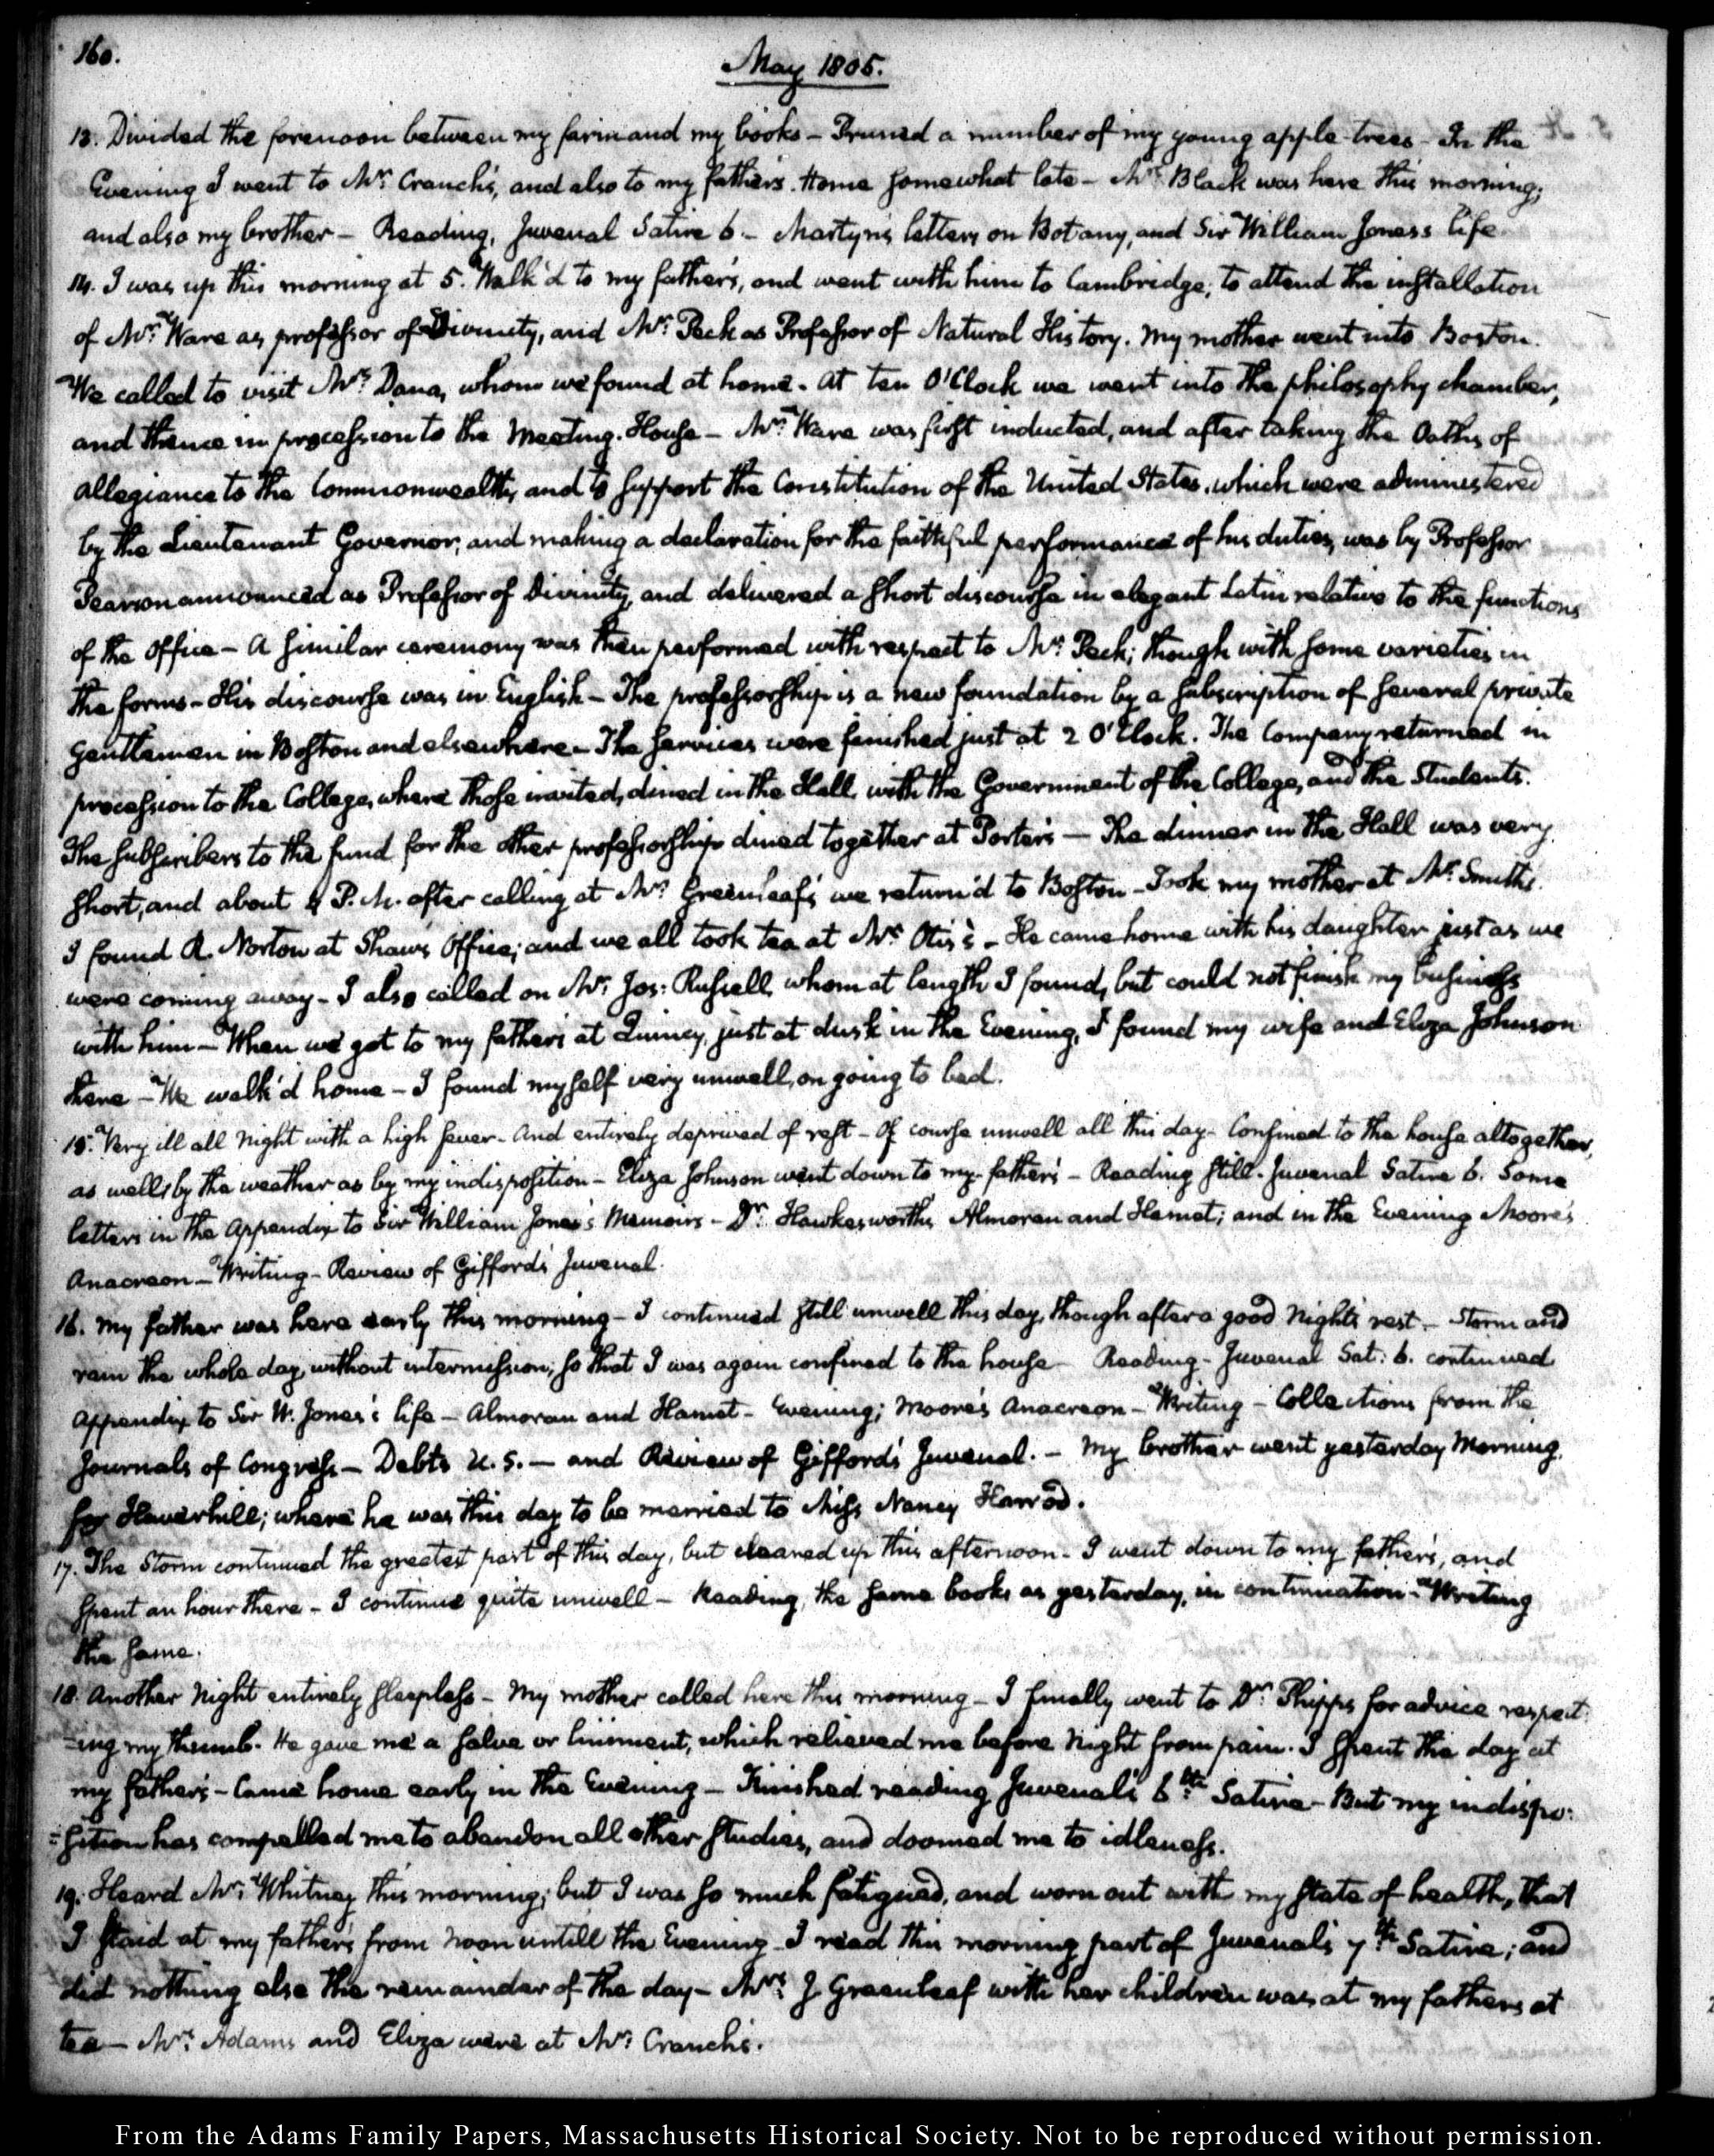 160.
May 1805.
13. Divided the forenoon between my farm and my books – Pruned a number of my young apple-trees – In the
Evening I went to Mr. Cranch's, and also to my father's. Home somewhat late – Mr. Black was here this morning;
and also my brother – Reading, Juvenal Satire 6. – Martyn's letters on Botany, and Sir William Jones's life.
14. I was up this morning at 5. Walk'd to my father's, and went with him to Cambridge; to attend the installation
of Mr. Ware as professor of Divinity, and Mr. Peck as Professor of Natural History. My mother went into Boston.
We called to visit Mr. Dana, whom we found at home. At ten O'Clock we went into the philosophy chamber,
and thence in procession to the Meeting-House – Mr. Ware was first inducted, and after taking the Oaths of
allegiance to the Commonwealth, and to support the Constitution of the United States, which were administered
by the Lieutenant Governor, and making a declaration for the faithful performance of his duties, was by Professor
Pearson announced as Professor of Divinity, and delivered a short discourse in elegant Latin relative to the functions
of the office – A similar ceremony was then performed with respect to Mr. Peck; though with some varieties in
the forms – His discourse was in English – The professorship is a new foundation by a subscription of several private
gentlemen in Boston and elsewhere – The services were finished just at 2 O'Clock. The Company returned in
procession to the College, where those invited, dined in the Hall with the Government of the College, and the Students.
The subscribers to the fund for the other professorship dined together at Porter's – The dinner in the Hall was very
short, and about 4 P.M. after calling at Mr. Greenleaf's we return'd to Boston – Took my mother at Mr. Smith's.
I found R. Norton at Shaw's Office; and we all took tea at Mr. Otis's – He came home with his daughter just as we
were coming away – I also called on Mr. Jos: Russell, whom at length I found, but could not finish my business
with him – When we got to my father's at Quincy, just at dusk in the Evening, I found my wife and Eliza Johnson
there – We walk'd home – I found myself very unwell, on going to bed.
15. Very ill all Night with a high fever – And entirely deprived of rest – Of course unwell all this day – Confined to the house altogether,
as well by the weather as by my indisposition – Eliza Johnson went down to my father's – Reading still – Juvenal Satire 6. Some
letters in the Appendix to Sir William Jones's Memoirs – Dr. Hawkesworth's Almoran and Hamet; and in the Evening Moore's
Anacreon – Writing – Review of Gifford's Juvenal.
16. My father was here early this morning – I continued still unwell this day, though after a good Night's rest. – Storm and
rain the whole day, without intermission; so that I was again confined to the house – Reading – Juvenal Sat: 6. continued
Appendix to Sir W. Jones's life – Almoran and Hamet – Evening; Moore's Anacreon – Writing – Collections from the
Journals of Congress – Debts U.S. – and Review of Gifford's Juvenal. – My brother went yesterday Morning
for Haverhill; where he was this day to be married to Miss Nancy Harrod.
17. The Storm continued the greatest part of this day, but cleared up this afternoon – I went down to my father's, and
spent an hour there – I continue quite unwell – Reading, the same books as yesterday, in continuation – Writing
the same.
18. Another Night entirely sleepless – My mother called here this morning – I finally went to Dr. Phipps for advice respect-
=ing my thumb. He gave me a salve or liniment, which relieved me before Night from pain. I spent the day at
my father's – Came home early in the Evening – Finished reading Juvenal's 6th. Satire – But my indispo:
=sition has compelled me to abandon all other studies, and doomed me to idleness.
19. Heard Mr. Whitney this morning; but I was so much fatigued, and worn out with my state of health, that
I staid at my father's from Noon untill the Evening – I read this morning part of Juvenal's 7th. Satire; and
did nothing else the remainder of the day – Mrs. J Greenleaf with her children was at my father's at
tea – Mrs. Adams and Eliza were at Mr. Cranch's.
From the Adams Family Papers, Massachusetts Historical Society. Not to be reproduced without permission.